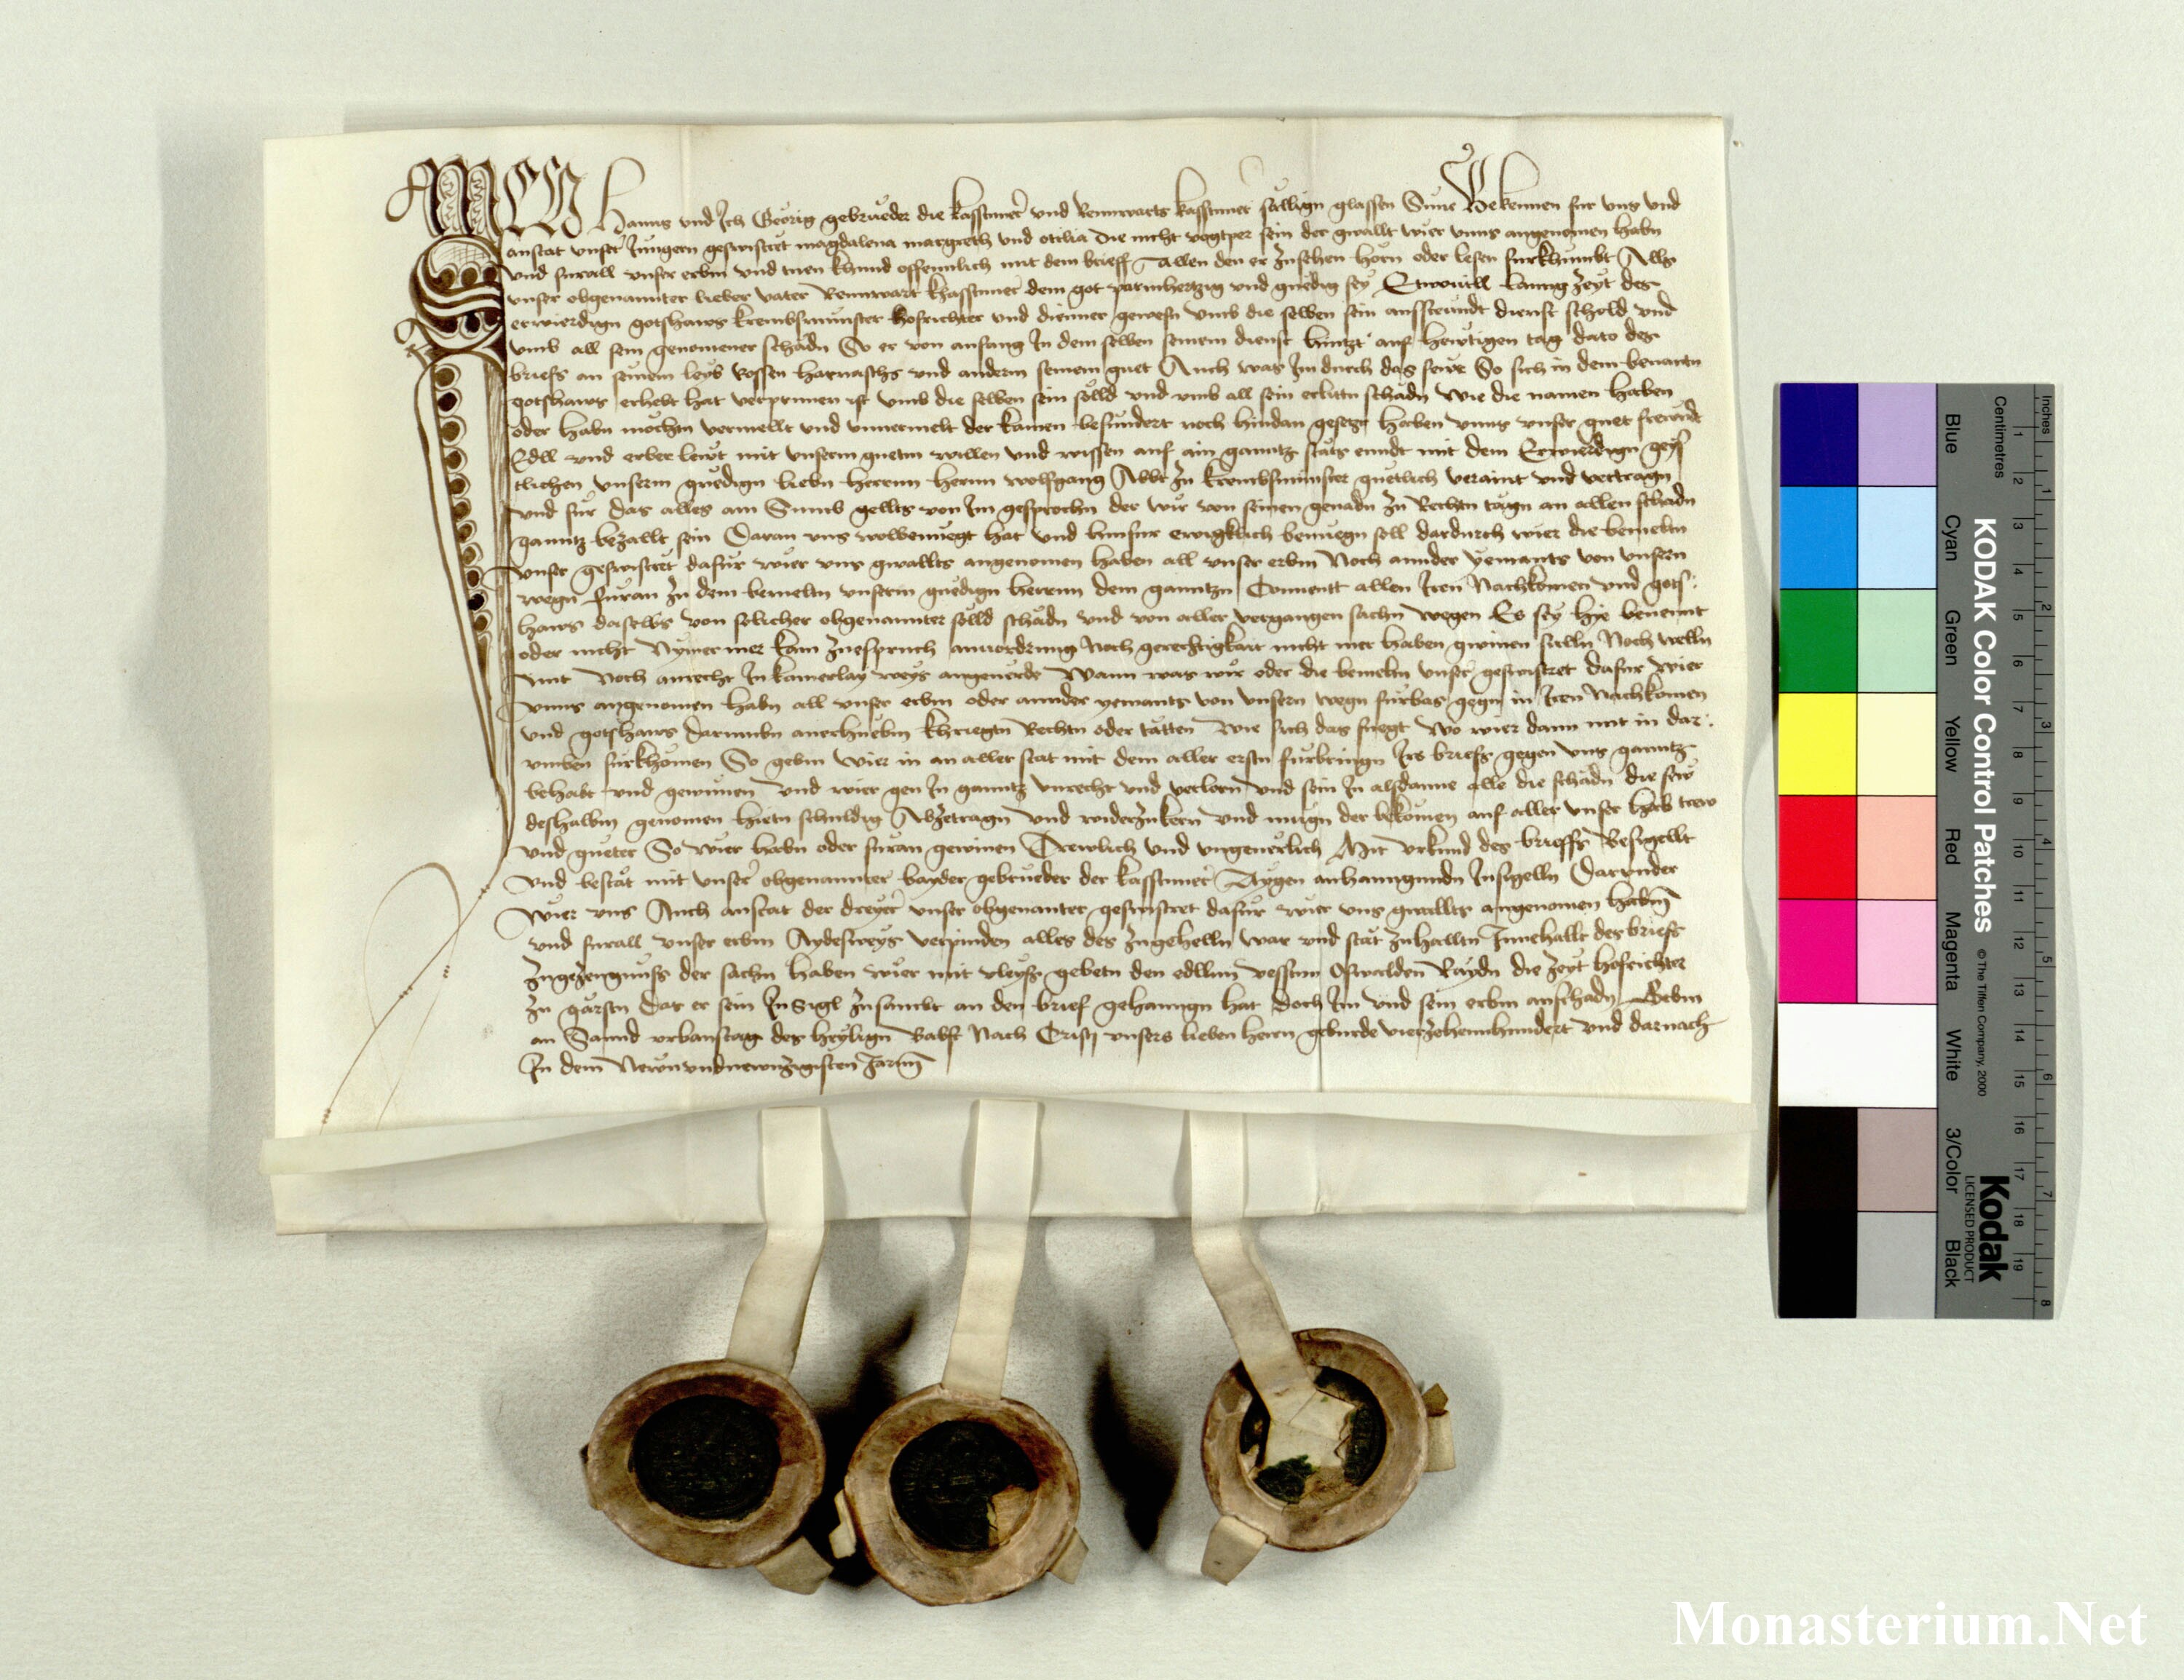 AMEN Ich Hanns vnd Ich Georig gebrueder die kasstner vnd Rennwarts kasstner sälligen glassen Sune Bekennen fur vns vnd
anstat vnser Jungern geswistret magdalena margreth vnd otilia die nicht vogtper sein der gwallt wier vnns angenomen habn
vnd fur all vnser erbm vnd tuen khund offennlich mit dem brieff Allen den er Zusehen horn oder lesen furkhumbt Alls
vnser obgenannter lieber vater Rennwart khasstner dem got parmhertzig vnd gnedig sey Etwouill lanng Zeyt des
erwierdign gotshaws krembsmunster hofrichter vnd dienner gewesn vmb die selben sein aussteundt dienst schold vnd
vmb all sein genomener schadn So er von anfang In dem selben seinem dienst huntzt auf hewtigen tag dato des
briefs an seinem leyb Rossen harnaschs vnd anderm seinem guet Auch was Im durch das fewr So sich in dem benantn
gotshaws erhebt hat verprunnen ist vmb die selben sein solld vnd vmb all sein erlittn schadn wie die namen haben
oder habn mochtn vermellt vnd vnuermelt der kainen besundert noch hindan gesetzt haben vnns vnser guet frewndt
Edll vnd erber lewt mit vnserm guetm willen vnd wissen auf ain ganntz stats enndt mit dem Erwierdign geys
tlichen vnserm gnedign liebn herrnn herrnn wolfgang Abbt Zu krembsmunster guetlich veraint vnd vertragn
vnd fur das alles ain Sumb gellts von Im gesprochn der wir von seinen genadn Zu Rechtn tagn an allen schadn
ganntz bezallt sein Daran vns wolbenuegt hat vnd hinfur ewigklich benuegn soll dardurch wier die bemeltn
vnser geswistret dafur wier vns gwallts angenomen haben all vnser erbm Noch annder yemants von vnsern
wegn furan Zu dem bemeltn vnserm gnedign herrnn dem ganntzn Conuentt allen Iren Nachkomen vnd gots
haws daselbs von solicher obgenannter solld schadn vnd von aller vergangen sachn wegen Es sey hye benennt
oder nicht Nymermer kain Zuespruch anuordrung Noch gerechtigkait nicht mer haben gwinen sulln Noch welln
mit Noch anrecht In kainerlay weys angeuerde Wann was wir oder die bemeltn vnser geswistret dafur wier
vnns angenomen habn all vnser erbm oder annder yemants von vnsern wegn furbas gegn in Iren Nachkomen
vnd gotshaws darumbn anerhuebm khriegtn Rechtn oder tatten wie sich das fuegt wo wier dann mit in dar
vmben furkhomen So gebm wier in an aller stat mit dem aller erstn furbringn Irs briefs gegen vns ganntz
behabt vnd gewunen vnd wier gen In ganntz vnrecht vnd verlorn vnd sein In alsdanne alle die schadn die sew
deshalbm genomen hietn schuldig Abzetragn vnd widerzukern vnd mugn der bekomen auf aller vnser hab trew
vnd gueter So wier habn oder furan gewinen Trewlich vnd vngeuerlich Mit vrkund des brieffs Besigellt
vnd bestat mit vnser obgenannter bayder gebrueder der kasstner Aygen anhanngundn Insigelln Darunder
Wier vns Auch anstat der dreyer vnser obgenanter geswistret dafur wier vns gwallts angenomen habm
vnd fur all vnser erbm Aydesweys verpinden alles des Zugehelln war vnd stat Zuhalltn Innehallt des briefs
Zugezeugnuss der sachn haben wier mit vleyss gebetn den edllnn vesstnn Oswalden Raydn die Zeyt hofrichter
Zu garstn das er sein In Sigl Zusambt an den brief gehanngn hat doch Im vnd sein erbm anschadn Gebm
an Sannd vrbanstag des heyligen Babst Nach Cristi vnsers lieben herrn geburde vierzehennhundert vnd darnach
In dem Newnvndnewnzigisten Jarnn
Inches
Centimetres
KODAK Color Control Patches
© The Tiffen Company, 2000
Kodak
LICENSED PRODUCT
Blue
Cyan
Green
Yellow
Red
Magenta
White
3/Color
Black
1 2 3 4 5 6 7 8 9 10 11 12 13 14 15 16 17 18 19
1 2 3 4 5 6 7 8
Monasterium.Net